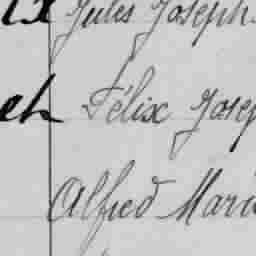 Jules Joseph
Félix Josep
Alfred Mari